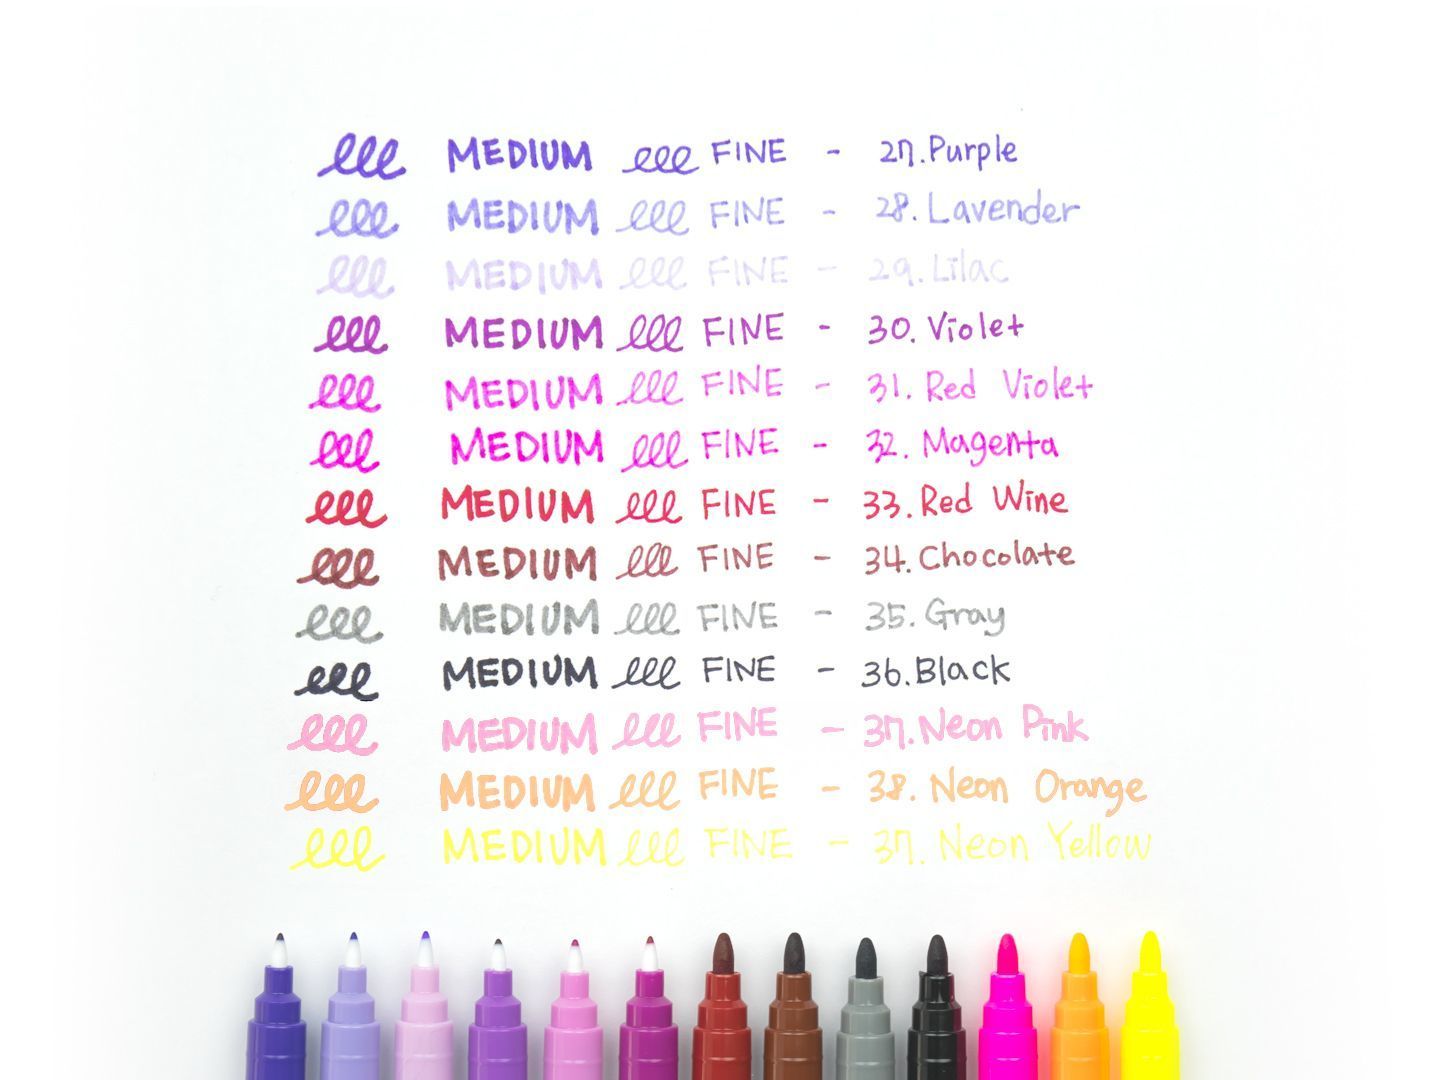 lll MEDIUM lll FINE - 27. Purple
lll MEDIUM lll FINE - 28. Lavender
lll MEDIUM lll FINE - 29. Lilac
lll MEDIUM lll FINE - 30. Violet
lll MEDIUM lll FINE - 31. Red Violet
lll MEDIUM lll FINE - 32. Magenta
lll MEDIUM lll FINE - 33. Red Wine
lll MEDIUM lll FINE - 34. Chocolate
lll MEDIUM lll FINE - 35. Gray
lll MEDIUM lll FINE - 36. Black
lll MEDIUM lll FINE - 37. Neon Pink
lll MEDIUM lll FINE - 38. Neon Orange
lll MEDIUM lll FINE - 37. Neon Yellow